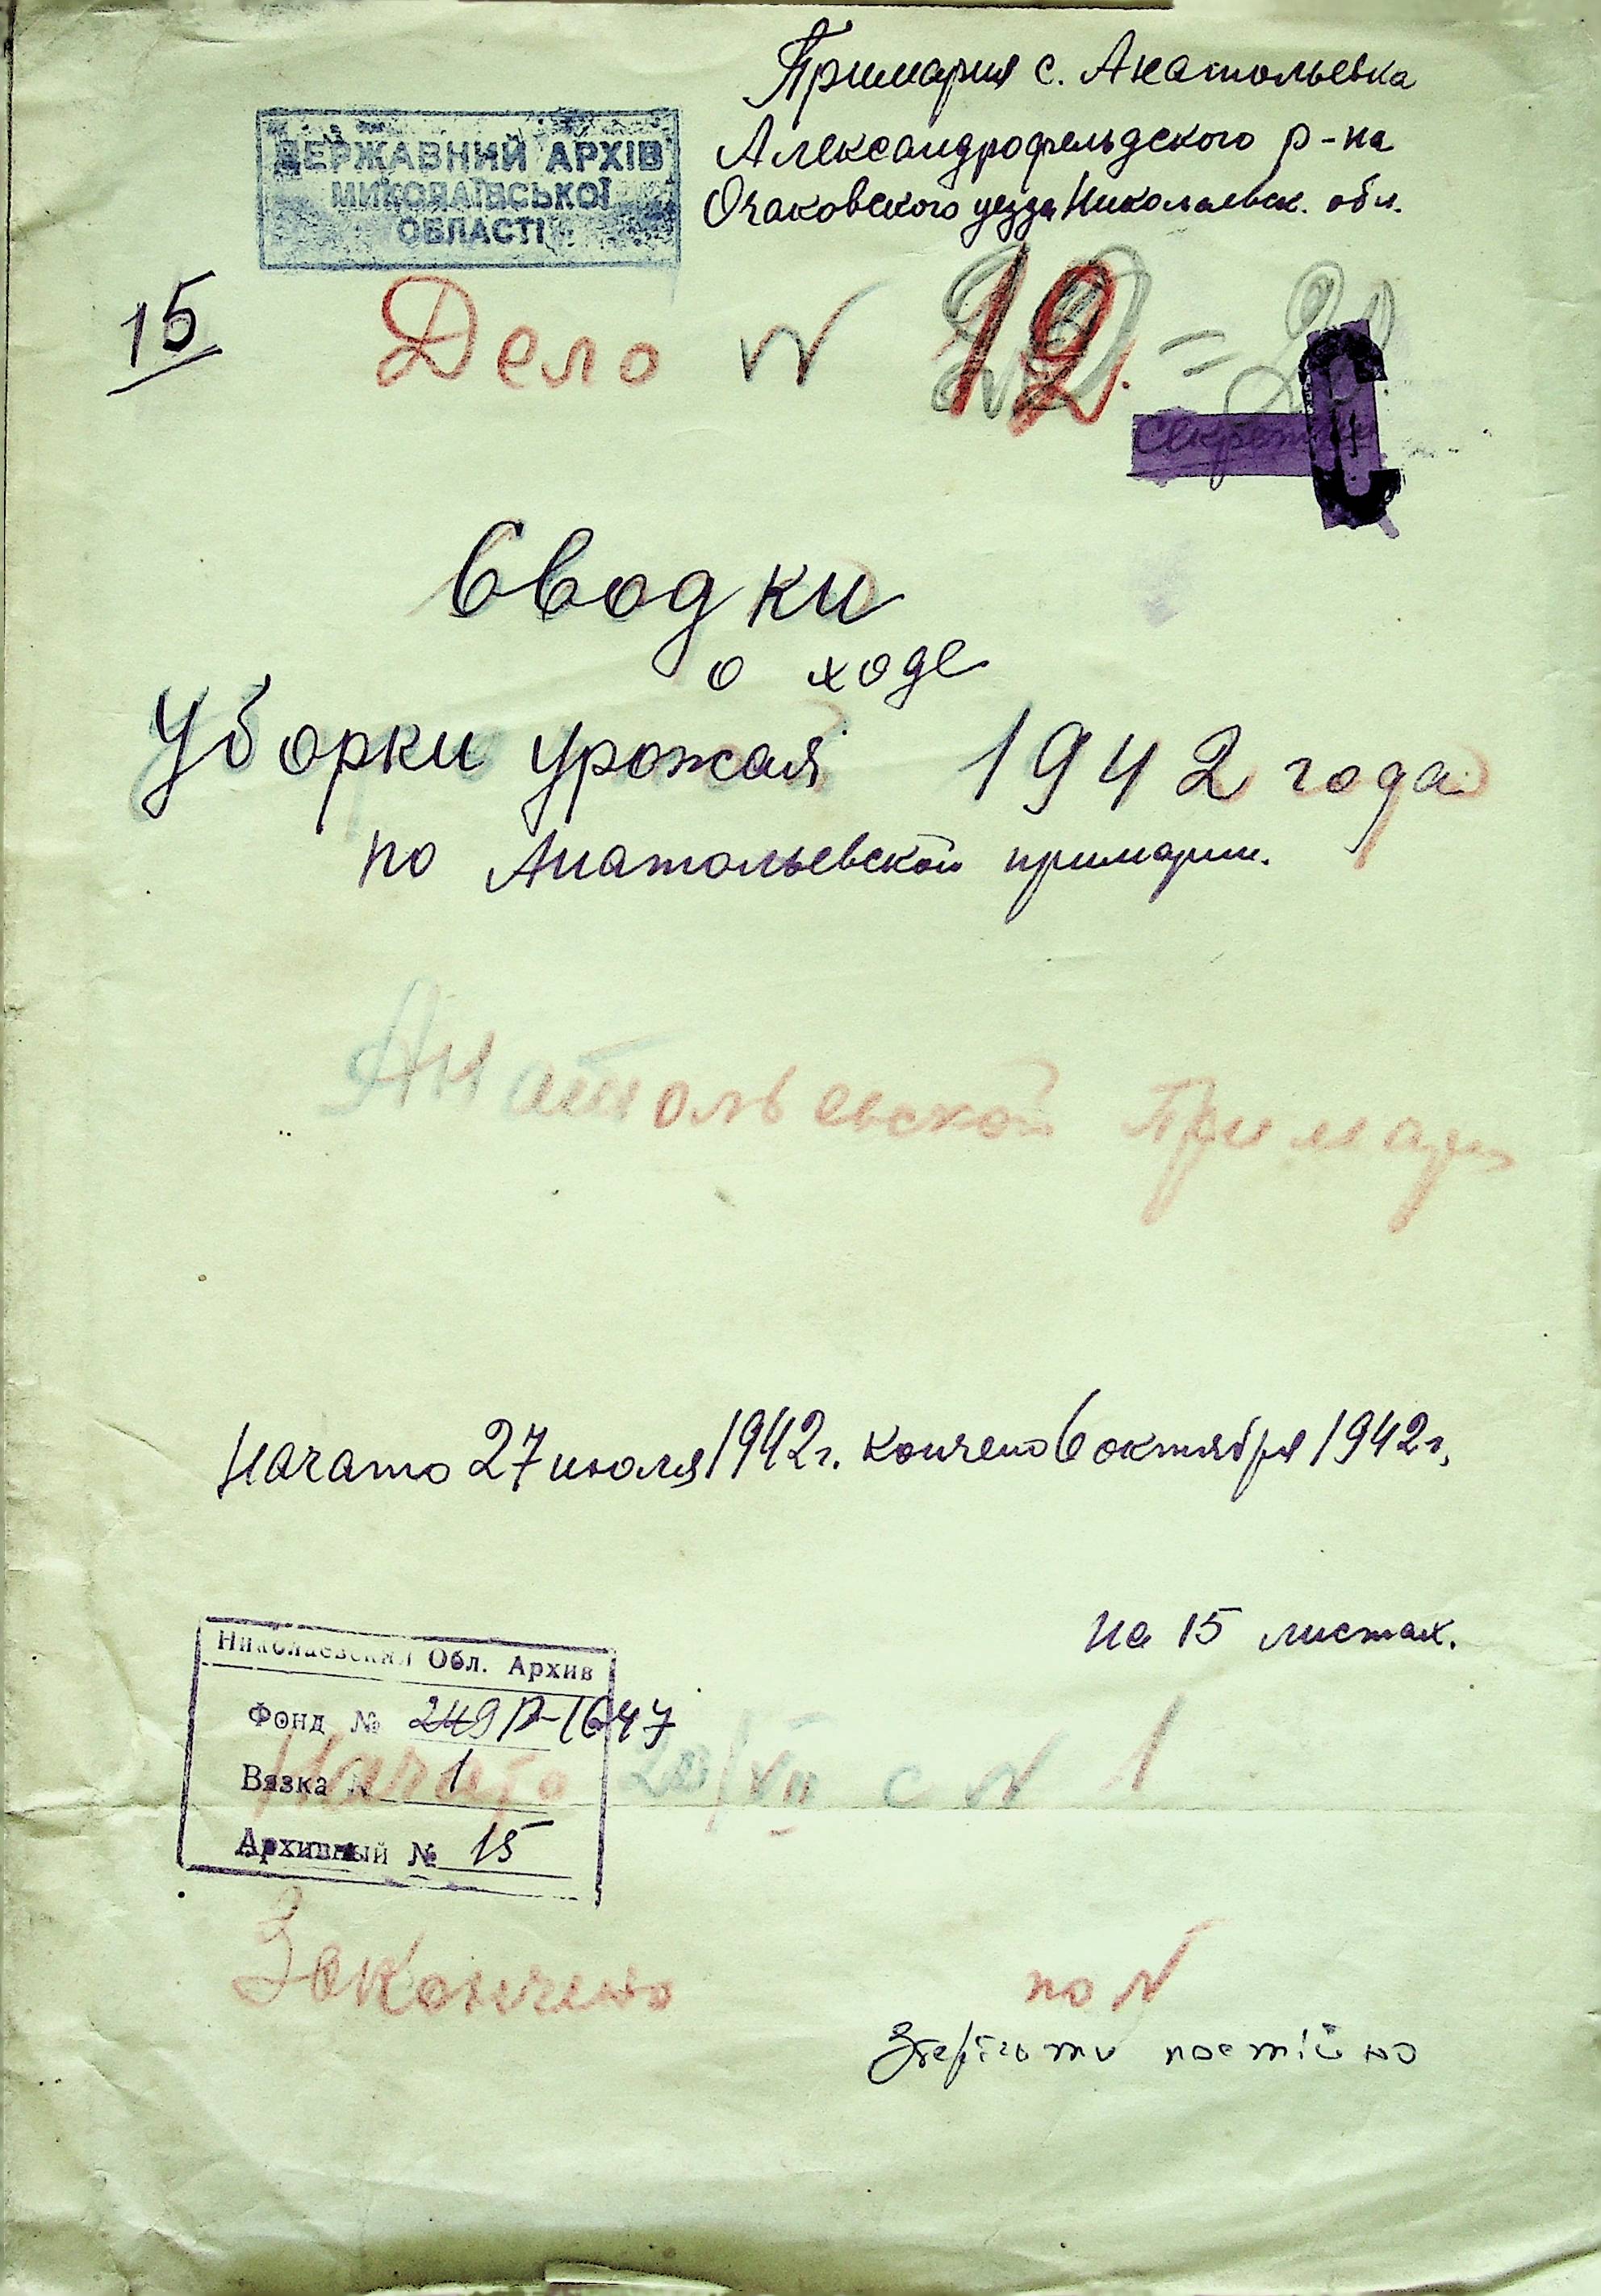 Примария с. Анатольевка
Александрофельдского р-на
Очаковского уезда Николаевск. обл.
ДЕРЖАВНИЙ АРХІВ
МИКОЛАЇВСЬКОЇ
ОБЛАСТІ
15
Дело N 12
Сводки
о ходе
Уборки урожая 1942 года
по Анатольевской примарии.
Анатольевской Примари
Начато 27 июля 1942 г. кончено 6 октября 1942 г.
на 15 листах.
Николаевский Обл. Архив
Фонд № 249 Р-1647
Вязка № 1
Архивный № 15
Начато 20/VII с N 1
Закончено по N
Зберігати постійно